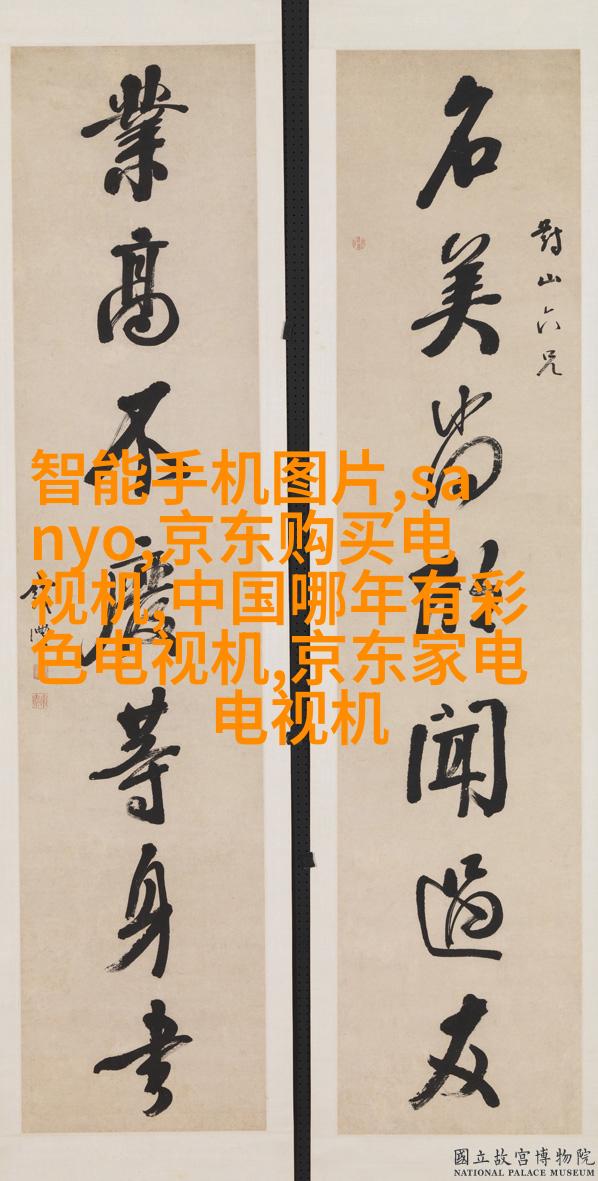 對山六兄
名美尚欣聞過友
業高不廢等身書
錢灃
智能手机图片,sa
nyo,京东购买电
视机,中国哪年有彩
色电视机,京东家电
电视机
國立故宮博物院
NATIONAL PALACE MUSEUM